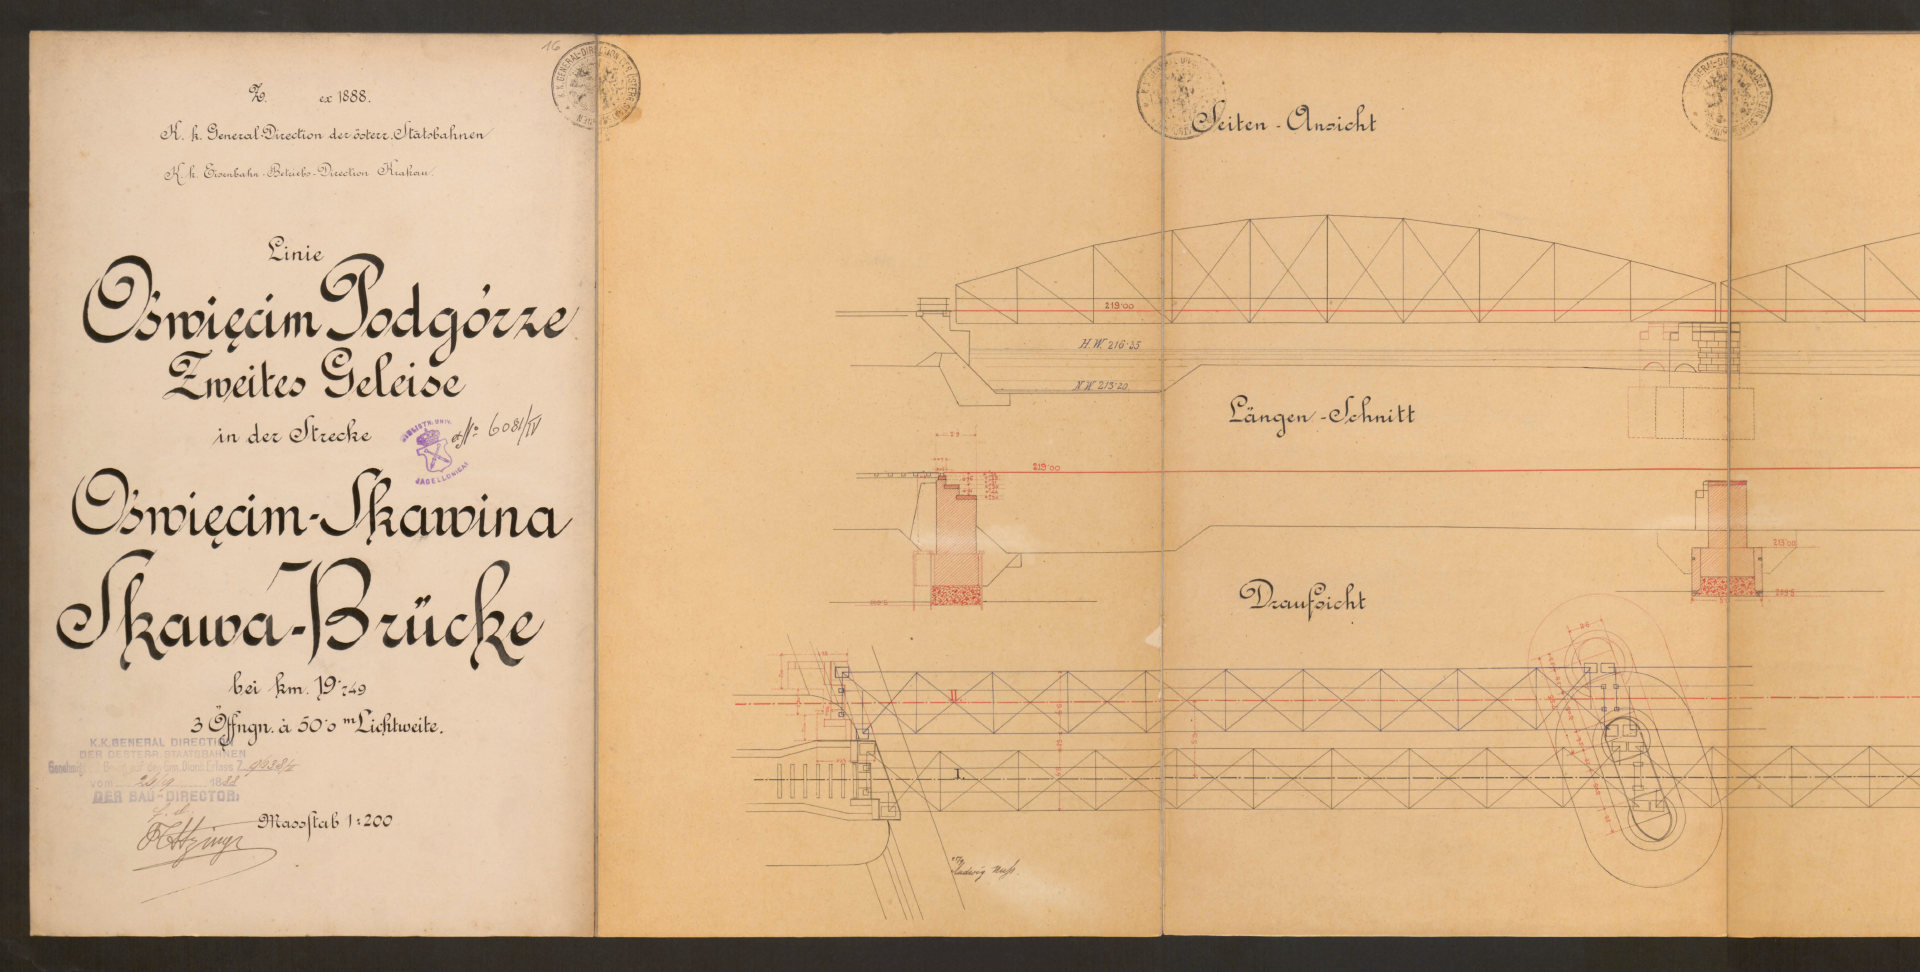 16
Z. ex 1888.
K. k. General-Direction der österr. Statsbahnen
K. k. Eisenbahn-Betriebs-Direction Krakau.
Linie
Oświęcim Podgórze
Zweites Geleise
in der Strecke
BIBLIOTH. UNIV.
JAGELLONICAE
No 6081/IV
Oświęcim-Skawina
Skawa-Brücke
bei km. 19·749
3 Öffngn. à 50·0 m Lichtweite.
K.K. GENERAL DIRECTION
DER OESTERR. STAATSBAHNEN
vom 1888
DER BAU-DIRECTOR:
Massstab 1:200
Seiten-Ansicht
219·00
H.W. 216·25
N.W. 213·20
Längen-Schnitt
219·00
213·00
Draufsicht
II.
I.
Ludwig Nuss.